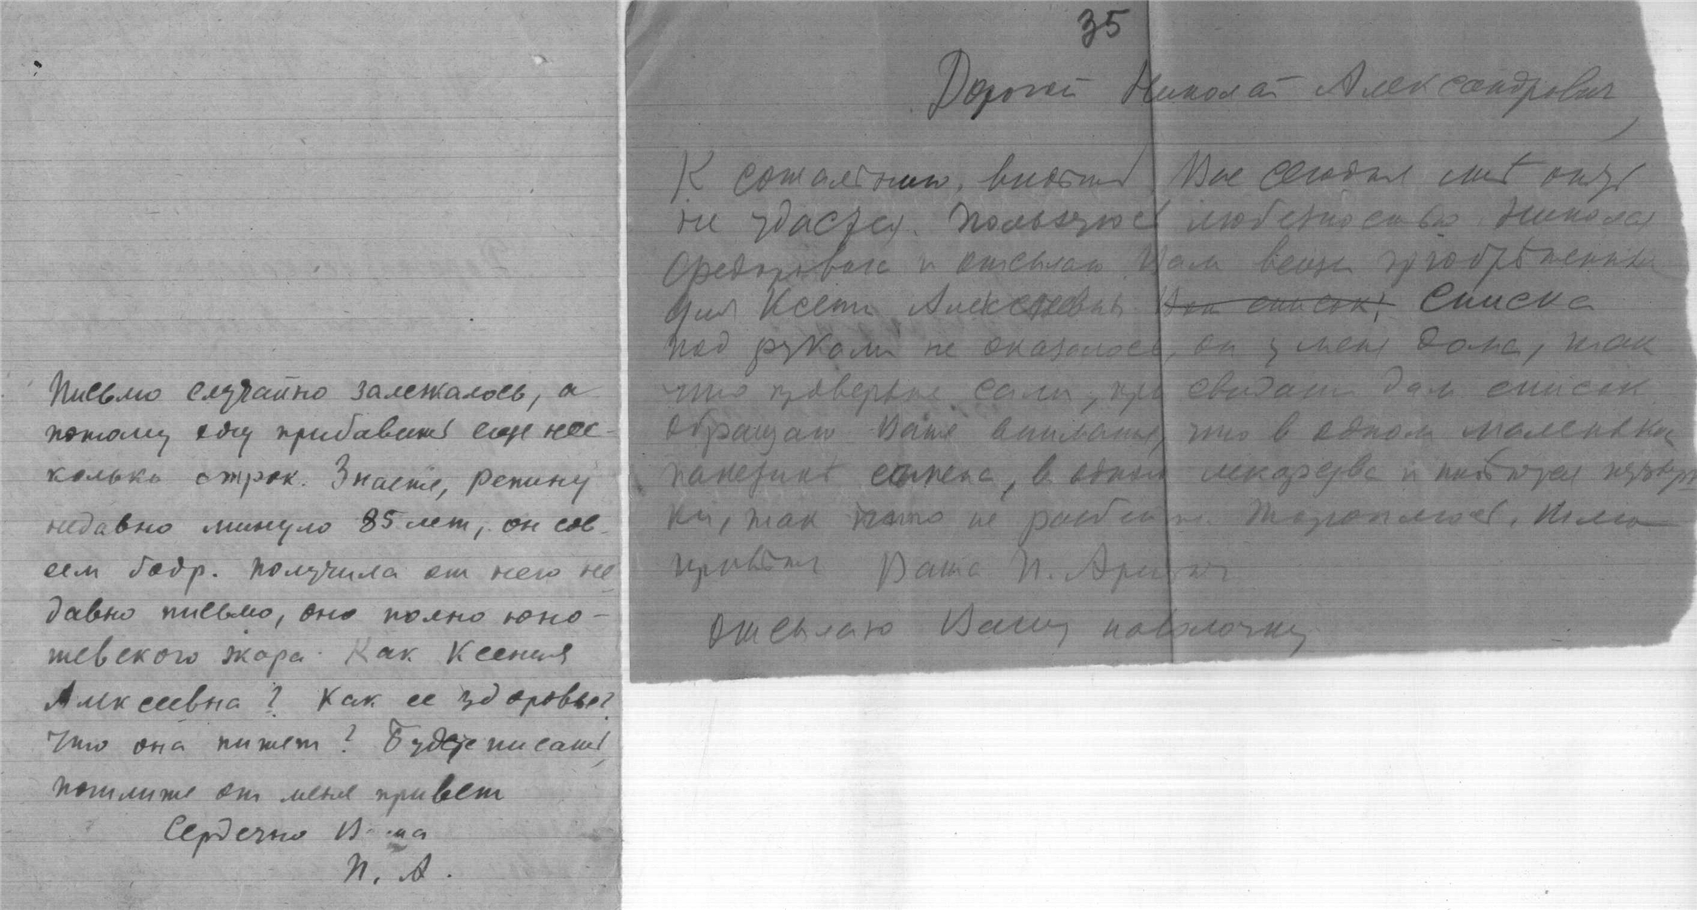 Письмо случайно залежалось, а
потому хочу прибавить еще нес-
колько строк. Знаете, Репину
недавно минуло 85 лет, он сов-
сем бодр. Получила от него не
давно письмо, оно полно юно-
шевского жара. Как Ксения
Алексеевна? Как ее здоровье?
Что она пишет? Будете писать,
пошлите от меня привет
Сердечно Ваша
П. А.
35
Дорогой Николай Александрович,
К сожалѣнию, видѣть Вас сегодня мнѣ
не удастся. Пользуюсь любезностью Николая
Федоровича и отсылаю Вам вещи приобрѣтенныя
для Ксении Алексеевны Вот список: Списка
под руками не оказалось, он у меня дома, так
что проверьте сами, при свидании дам список.
Обращаю Ваше внимание, что в одном маленьком
пакетикѣ, в одном лекарства и
ки, так что не разбейте. Тороплюсь. Шлю
привѣт Ваша П.
отсылаю Вашу наволочку